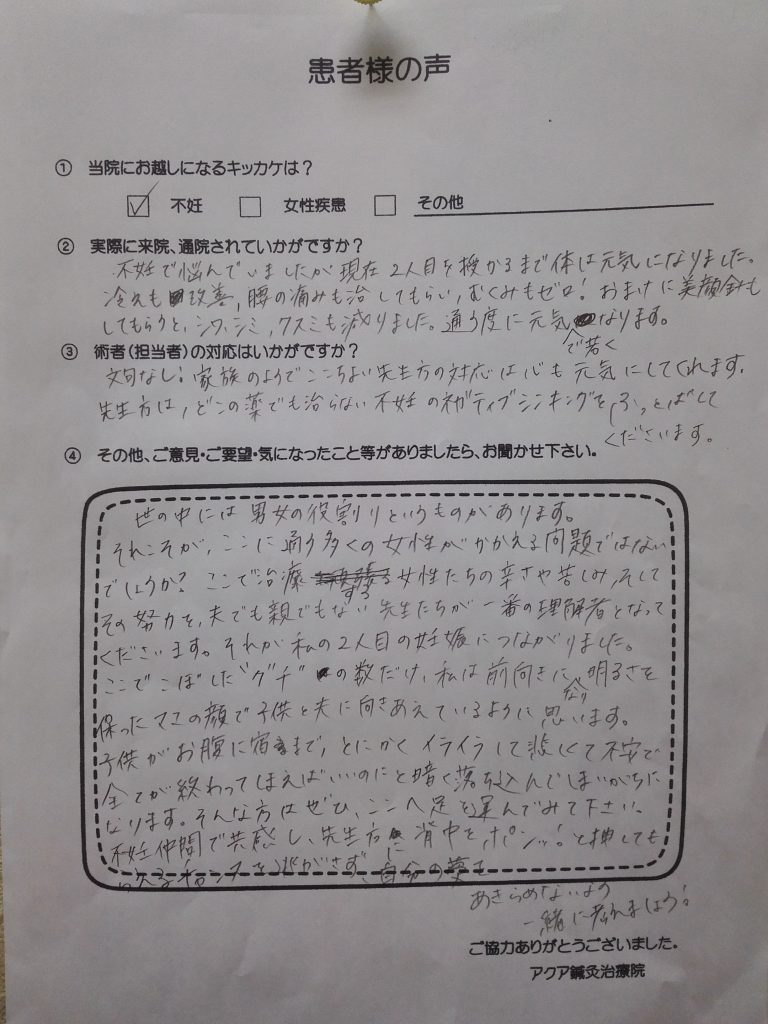 患者様の声
① 当院にお越しになるキッカケは？
不妊 女性疾患 その他
② 実際に来院、通院されていかがですか？
不妊で悩んでいましたが現在2人目を授かるまで体は元気になりました。
冷えも改善，腰の痛みも治してもらい，むくみもゼロ！おまけに美顔針も
してもらうと，シワ，シミ，クスミも減りました。通う度に元気で若くなります。
③ 術者（担当者）の対応はいかがですか？
文句なし！家族のようでここちよい先生方の対応は心も元気にしてくれます。
先生方は，どこの薬でも治らない不妊のネガティブシンキングをふっとばして
くださいます。
④ その他、ご意見・ご要望・気になったこと等がありましたら、お聞かせ下さい。
世の中には男女の役割りというものがあります。
それこそが，ここに通う多くの女性がかかえる問題ではない
でしょうか？ここで治療する女性たちの辛さや苦しみ，そして
その努力を，夫でも親でもない先生たちが一番の理解者となって
くださいます。それが私の2人目の妊娠につながりました。
ここでこぼした〝グチ〞の数だけ，私は前向きになり明るさを
保ったママの顔で子供と夫に向きあえているように思います。
子供がお腹に宿るまで，とにかくイライラして悲しくて不安で
全てが終わってしまえばいいのにと暗く落ち込んでしまいがちに
なります。そんな方はぜひ，ここへ足を運んでみて下さい。
不妊仲間で共感し、先生方に背中を，ポンッ！と押しても
らえるチャンスを逃がさず、自分の夢を
あきらめないよう
一緒に しょう！
ご協力ありがとうございました。
アクア鍼灸治療院